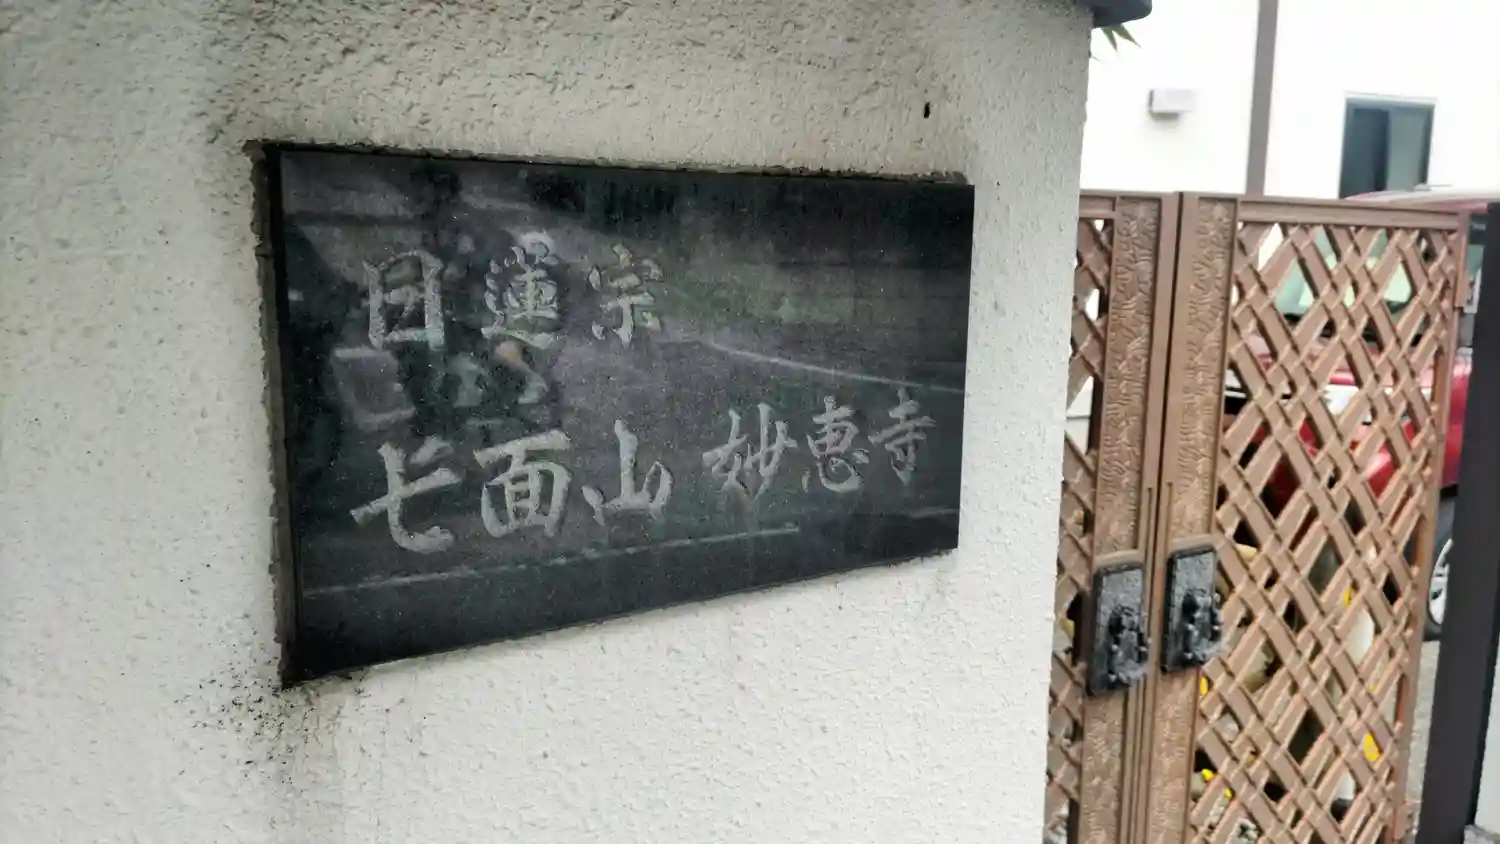 日蓮宗
七面山 妙恵寺